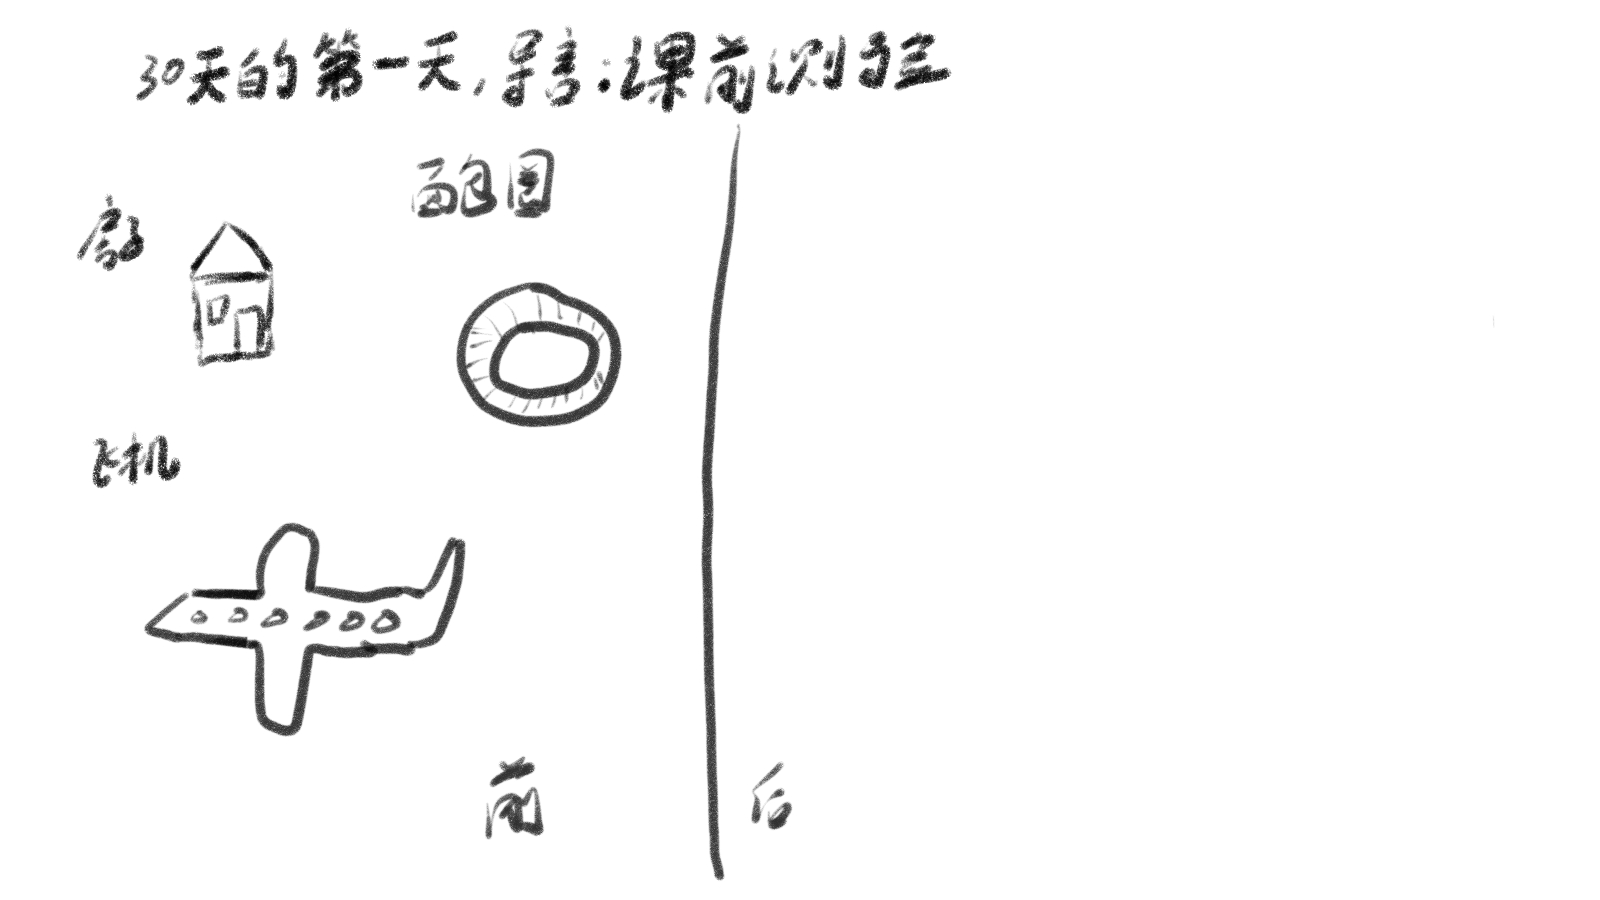 30天的第一天,导言:课前测验
面包圈
房子
飞机
前
后